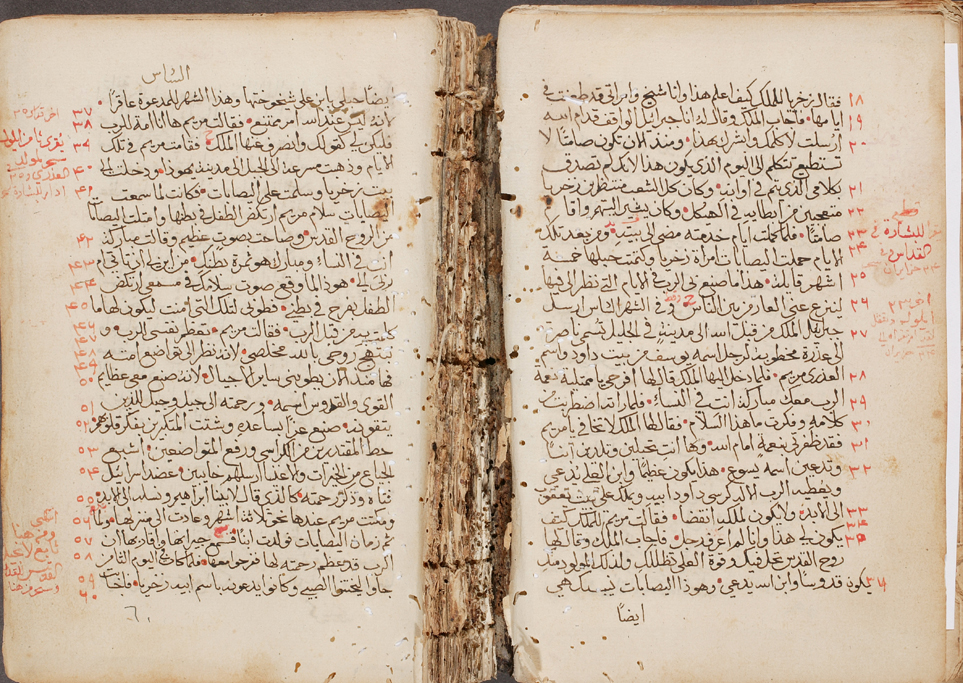 ١٨ فقال زخريا للملاك كيف اعلم هذا وانا شيخ وامراتي قد طعنت في
١٩ ايامها فاجاب الملاك وقال له انا جبرايل الواقف قدام الله
٢٠ ارسلت لاكلمك وابشرك بهذا ومنذ الان يكون صامتًا لا
تستطيع تتكلم الى اليوم الذي يكون هذا لانك لم تصدق
٢١ كلامي الذي يتم في اوانه وكان كل الشعب منتظرين زخريا
٢٢ متعجبين من ابطايه في الهيكل وكان يشير اليهم واقا
٢٣ صامتًا فلما كملت ايام خدمته مضى الى بيته ومن بعد تلك
٢٤ الايام حملت اليصابات امراة زخريا وكتمت حبلها خمسة
٢٥ اشهر قايلة هذا ما صنع بي الرب في الايام التي نظر الي فيها
٢٦ لينزع عني العار من بين الناس وفي الشهر السادس ارسل
٢٧ جبرايل الملاك من قبل الله الى مدينة في الجليل تسمى ناصرة
الى عذرة مخطوبة لرجل اسمه يوسف من بيت داود واسم
٢٨ العذرى مريم فلما دخل اليها الملاك قال لها افرحي يا ممتلية نعمة
٢٩ الرب معك مباركة انت في النساء فلما راته اضطربت من
٣٠ كلامه وفكرت ما هذا السلام فقال لها الملاك لا تخافي يا مريم
٣١ فقد ظفرتي بنعمة امام الله وها انت تحبلين وتلدين ابنًا
٣٢ وتدعين اسمه يسوع هذا يكون عظيمًا وابن العلي يدعى
ويعطيه الرب الاله كرسي داود ابيه ويملك على بيت يعقوب
٣٣ الى الابد ولا يكون لملكه انقضا فقالت مريم للملاك كيف
٣٤ ٣٥ يكون لي هذا وانا لم اعرف رجل فاجاب الملاك وقال لها
روح القدس تحل فيك وقوة العلي تظللك ولذلك المولود منك
٣٦ يكون قدوسًا وابن الله يدعى وهوذا اليصابات نسيبتك هي
ايضًا
السادس
ايضًا حبلى بابن على شيخوختها وهذا الشهر المدعوة عاقرًا
٣٧ لانه ليس عند الله امر يمتنع فقالت مريم ها انا امة الرب
٣٨ فليكن لي كقولك وانصرف عنها الملاك فقامت مريم في تلك
٣٩ الايام وذهبت مسرعة الى الجبل الى مدينة يهودا ودخلت الى
٤٠ بيت زخريا وسلمت على اليصابات فكانت لما سمعت
٤١ اليصابات سلام مريم ارتكض الطفل في بطنها وامتلت اليصابات
من الروح القدس وصاحت بصوت عظيم وقالت مباركة
٤٢ انت في النساء ومباركة هو ثمرة بطنك من اين لي ان تاتي ام
٤٣ ربي الي هوذا لما وقع صوت سلامك في مسمعي ارتكض
٤٤ الطفل بفرح في بطني فطوبى لتلك التي امنت ليكون لها ما
٤٥ كلمت به من قبل الرب فقالت مريم تعظم نفسي الرب و
٤٦ ٤٧ تبتهج روحي بالله مخلصي لانه نظر الى تواضع امته
٤٨ ٤٩ فها منذ الان يطوبني ساير الاجيال لانه صنع معي عظايم
٥٠ القوي والقدوس اسمه ورحمته الى جيل وجيل للذين
٥١ يتقونه صنع عزًا بساعده وشتت المتكبرين بفكر قلوبهم
٥٢ حط المقتدرين من الكراسي ورفع المتواضعين اشبع
٥٣ الجياع من الخيرات والاغنيا ارسلهم خايبين عضد اسرايل
٥٤ فتاه وذكر رحمته كالذي قال لابينا ابراهيم ونسله الى الابد
٥٥ ومكثت مريم عندها نحو ثلاثة اشهر وعادت الى منزلها ولما
٥٦ تم زمان اليصابات لتلد ولدت ابنًا فسمع جيرانها واقاربها ان
٥٧ الرب قد عظم رحمته لها ففرحوا معها فلما كان في اليوم الثامن
٥٨ ٥٩ جاوا ليختنوا الصبي وكانوا يدعونه باسم ابيه زخريا فاجابت
٦٠